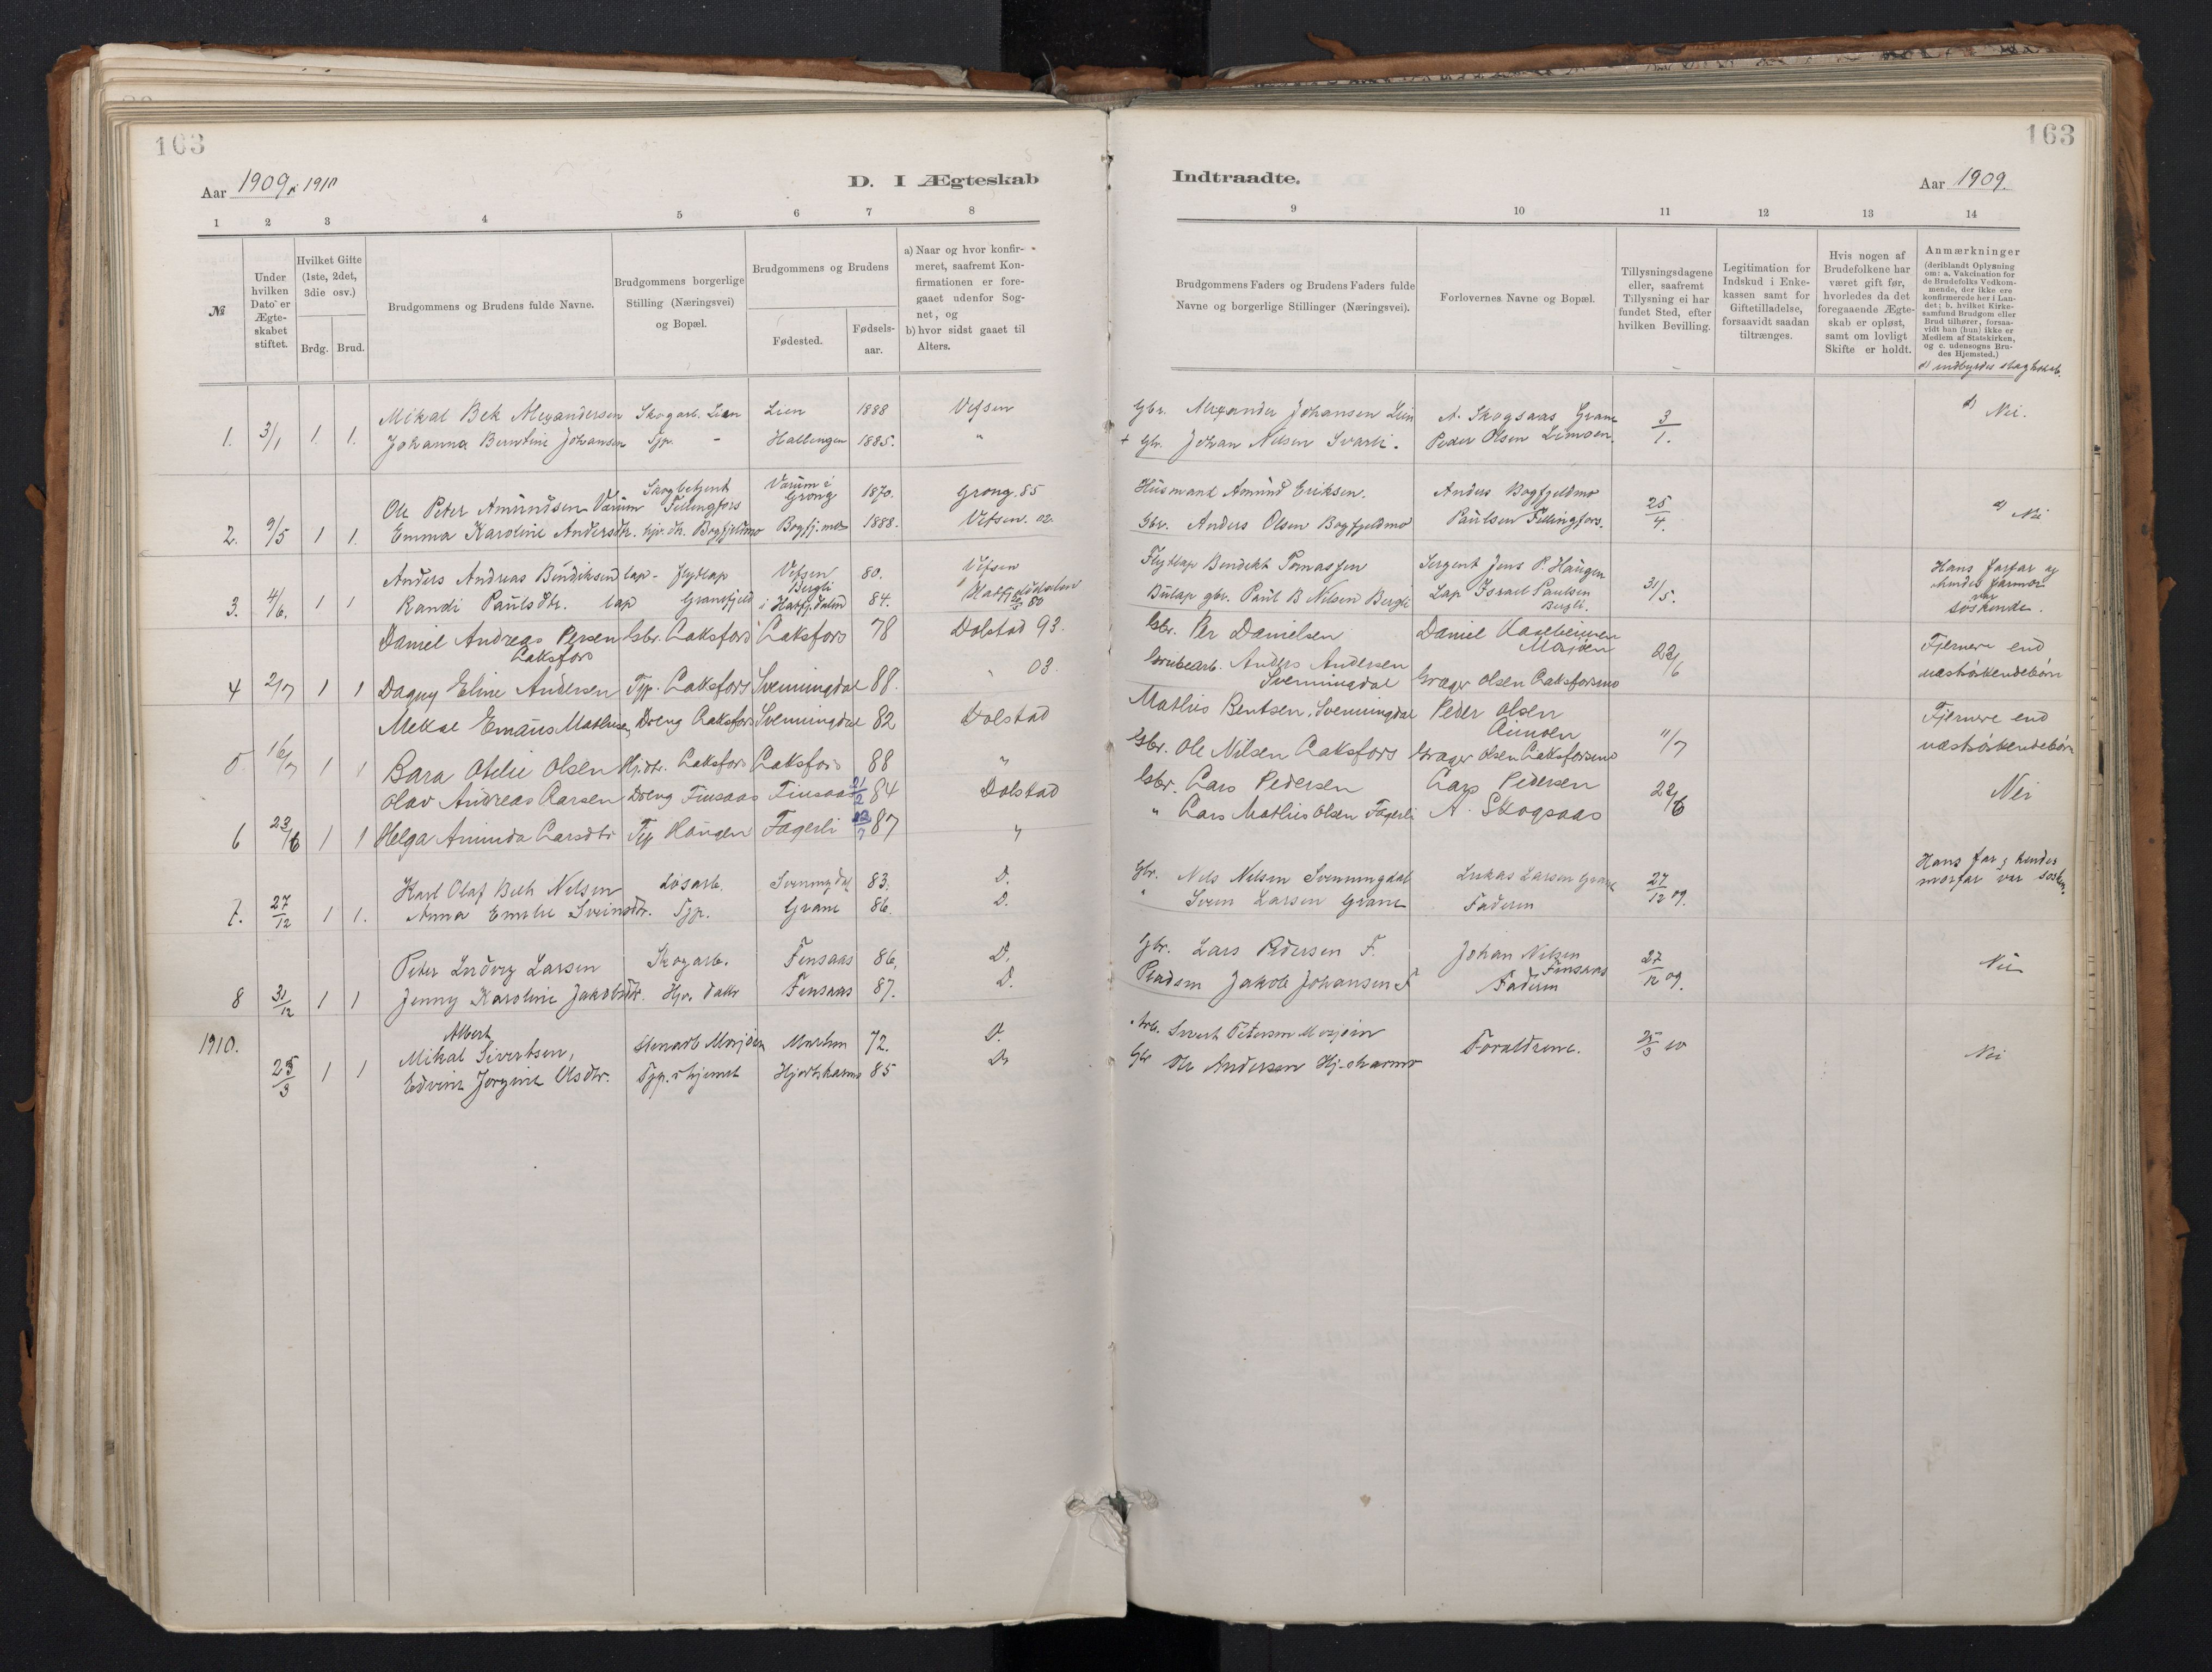 163
Aar 1909 & 1910
D. I Ægteskab
1 2 3 4 5 6 7 8
№
Under hvilken Dato er Ægteskabet stiftet.
Hvilket Gifte (1ste, 2det, 3die osv.)
Brdg. Brud.
Brudgommens og Brudens fulde Navne.
Brudgommens borgerlige Stilling (Næringsvei) og Bopæl.
Brudgommens og Brudens
Fødested.
Fødsels-aar.
a) Naar og hvor konfirmeret, saafremt Konfirmationen er foregaaet udenfor Sognet, og
b) hvor sidst gaaet til Alters.
Mikal Bek Alexandersen Skogarb. Lien Lien 1888 Vefsen
1. 3/1 1. 1. Johanna Berntine Johansen Tjp. - Hallingen 1885. "
Ole Peter Amundsen Værum Skogbetjent Fellingfors Værum i Grong 1870. Grong. 85
2. 9/5 1 1. Emma Karoline Andersdtr. hjv. dt. Bogfjeldmo Bogfj.mo 1888. Vefsen. 02.
Anders Andreas Bendiksen lap - flytlap Vefsen 80. Vefsen
3. 4/6. 1 1 Randi Paulsdtr. lap Granefjeld Bergli i Hatfj.dalen 84. Hatfjelddalen
Daniel Andreas Persen Laksfors Gbr. Laksfors Laksfors 78 Dolstad 93.
4 2/7 1 1 Dagny Eline Andersen Tjp. Laksfors Svenningdal 88. " 03.
Mekal Emaus Mathisen Dreng Laksfors Svenningdal 82 Dolstad
5 16/7 1 1 Bara Otelie Olsen Hj.dt. Laksfors Laksfors 88 "
Olav Andreas Larsen Dreng Finsaas Finsaas 84 Dolstad
6 23/6 1 1 Helga Aminda Larsdtr Tjp Haugen Fagerli 87 "
Karl Olaf Bech Nilsen Løsarb. Svenningdal 83. D.
7. 27/12 1 1. Anna Emelie Sveinsdtr. Tjp. Grane 86. D.
Peter Ludvig Larsen Skogarb. Finsaas 86, D.
8 31/12 1 1 Jenny Karoline Jakobsdtr. Hjv. datr Finsaas 87. D.
1910.
Albert Mikal Sivertsen, Stenarb Mosjøen 72. D.
25/3 1 1 Edvine Jorgine Olsdtr. Tjp. i hjemmet 85 D.
163
Indtraadte.
Aar 1909.
9 10 11 12 13 14
Brudgommens Faders og Brudens Faders fulde Navne og borgerlige Stillinger (Næringsvei).
Forlovernes Navne og Bopæl.
Tillysningsdagene eller, saafremt Tillysning ei har fundet Sted, efter hvilken Bevilling.
Legitimation for Indskud i Enkekassen samt for Giftetilladelse, forsaavidt saadan tiltrænges.
Hvis nogen af Brudefolkene har været gift før, hvorledes da det foregaaende Ægteskab er opløst, samt om lovligt Skifte er holdt.
Anmærkninger (deriblandt Oplysning om: a. Vakcination for de Brudefolks Vedkommende, der ikke ere konfirmerede her i Landet; b. hvilket Kirkesamfund Brudgom eller Brud tilhører, forsaavidt han (hun) ikke er Medlem af Statskirken, og c. udensogns Brudes Hjemsted.)
d) indbyrdes slægtskab.
Gbr. Alexander Johansen Lien A. Skogsaas Grane 3/1. d) Nei.
+ Gbr. Johan Nilsen Svarli. Peder Olsen Limoen.
Husmand Amund Eriksen. Anders Bogfjeldmo 25/4. d) Nei
Gbr. Anders Olsen Bogfjeldmo Paulsen Fellingfors.
Flytlap Bendikt Tomassen Sergent Jens P. Haugen 31/5. Hans farfar og hendes farmor var søskende.
Bulap gbr. Paul B Nilsen Bergli Lap Israel Paulsen Bergli.
Gbr. Per Danielsen Daniel Mosjøen 22/6 Fjernere end næstsøskendebørn
Grubearb. Anders Andersen Svenningdal Grager Olsen Laksforsmo
Mathis Bentsen, Svenningdal Peder Olsen 11/7 Fjernere end næstsøskendebørn
Gbr. Ole Nilsen Laksfors Grager Olsen Laksforsmo
Gbr. Lars Pedersen Lars Pedersen 22/6 Nei
" Lars Mathis Olsen Fagerli A. Skogsaas
Gbr. Nils Nilsen Svenningdal Lukas Larsen Grane 27/12 09. Hans far & hendes morfar var søsken.
" Svein Larsen Grane Faderen
Gbr. Lars Pedersen F. Johan Nilsen Finsaas 27/12 09. Nei
Jakob Johansen F Faderen
Arb. Sivert Petersen Mosjøen Forældrene. 25/3 10 Nei
Gbr Ole Andersen